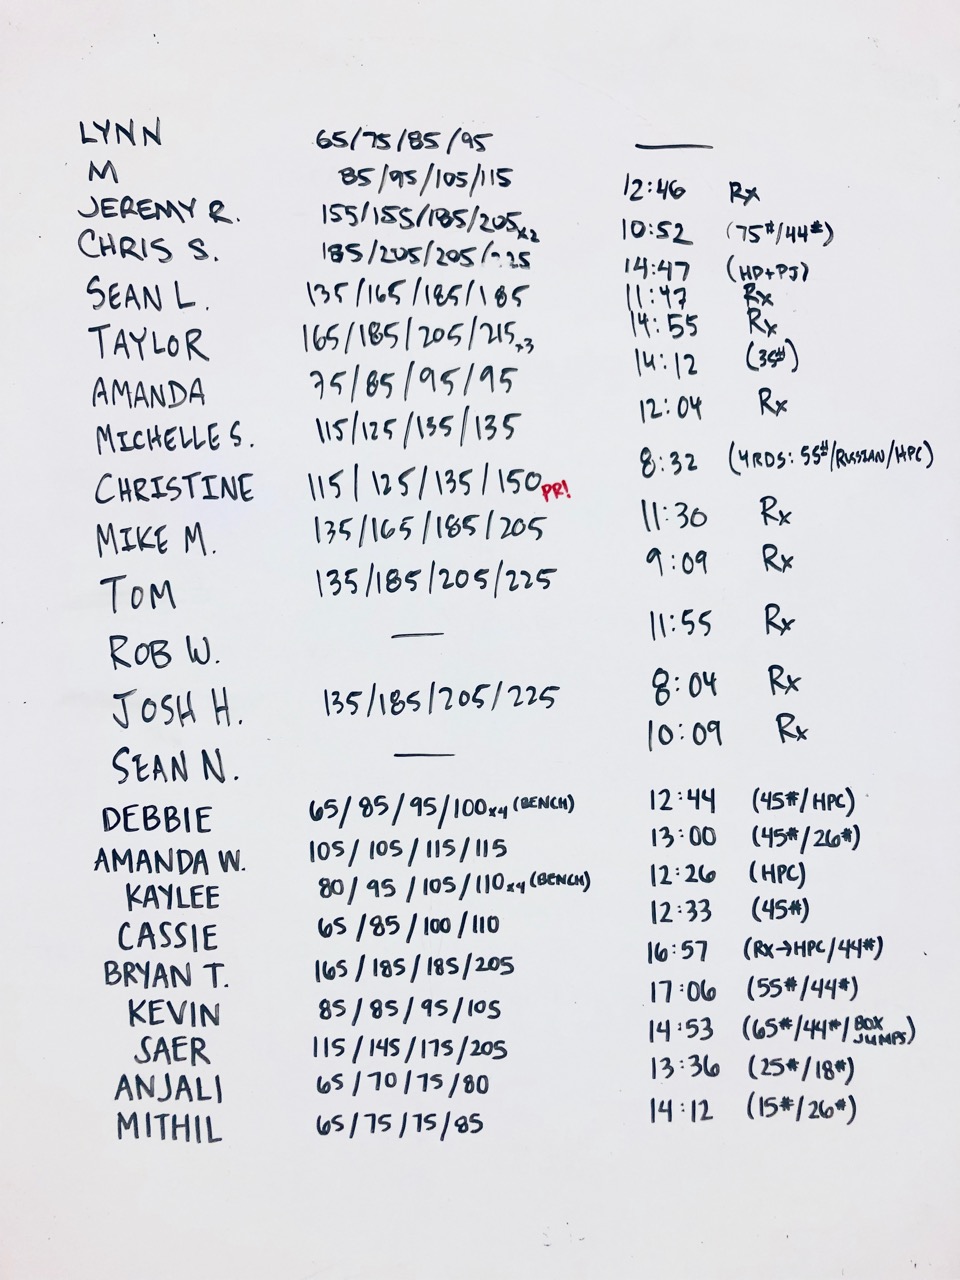 LYNN 65/75/85/95 —
M 85/95/105/115 12:46 Rx
JEREMY R. 155/155/185/205x2 10:52 (75#/44#)
CHRIS S. 185/205/205/ 14:47 (HP+PJ)
SEAN L. 135/165/185/185 11:47 Rx
TAYLOR 165/185/205/215x3 14:55 Rx
AMANDA 75/85/95/95 14:12 (35#)
MICHELLE S. 115/125/135/135 12:04 Rx
CHRISTINE 115/125/135/150 PR! 8:32 (4RDS: 55#/RUSSIAN/HPC)
MIKE M. 135/165/185/205 11:30 Rx
TOM 135/185/205/225 9:09 Rx
ROB W. — 11:55 Rx
JOSH H. 135/185/205/225 8:04 Rx
SEAN N. — 10:09 Rx
DEBBIE 65/85/95/100x4 (BENCH) 12:44 (45#/HPC)
AMANDA W. 105/105/115/115 13:00 (45#/26#)
KAYLEE 80/95/105/110x4 (BENCH) 12:26 (HPC)
CASSIE 65/85/100/110 12:33 (45#)
BRYAN T. 165/185/185/205 16:57 (Rx→HPC/44#)
KEVIN 85/85/95/105 17:06 (55#/44#)
SAER 115/145/175/205 14:53 (65#/44#/BOX JUMPS)
ANJALI 65/70/75/80 13:36 (25#/18#)
MITHIL 65/75/75/85 14:12 (15#/26#)